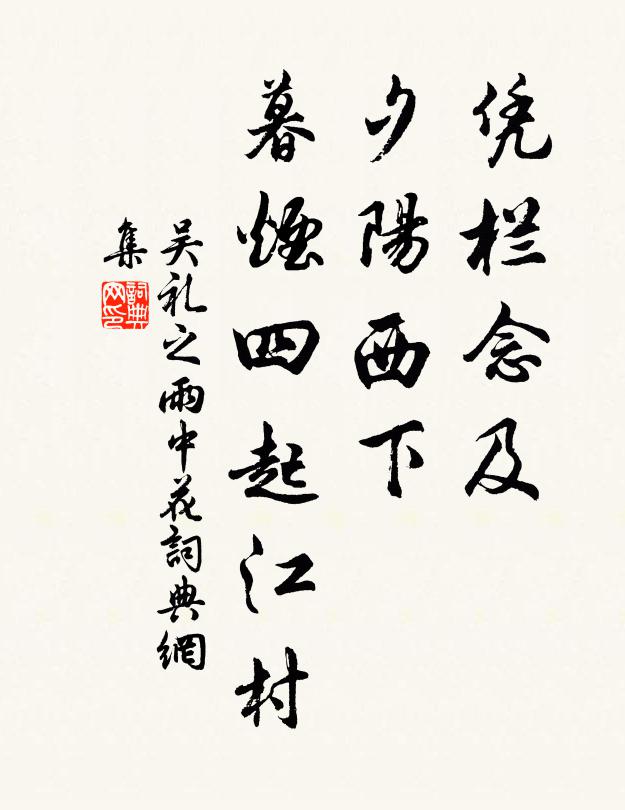 凭栏念及
夕陽西下
暮煙四起江村
吴礼之雨中花詞典網
集
詞典
网印